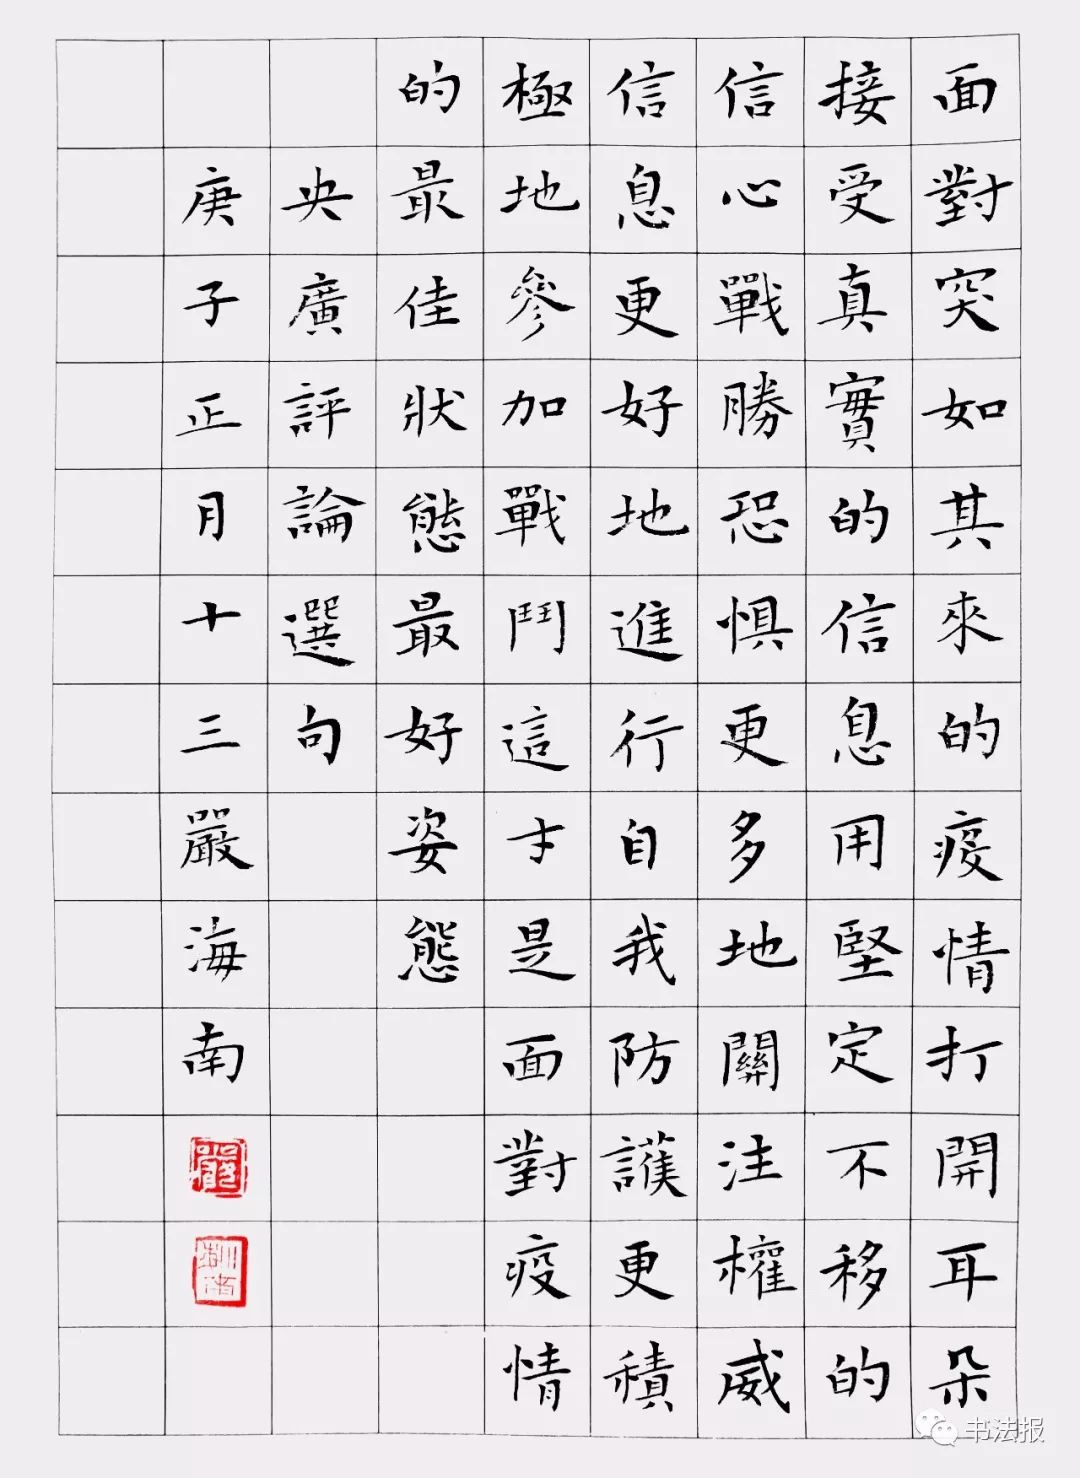 面對突如其來的疫情打開耳朵
接受真實的信息用堅定不移的
信心戰勝恐惧更多地關注權威
信息更好地進行自我防護更積
極地參加戰鬥這才是面對疫情
的最佳狀態最好姿態
央廣評論選句
庚子正月十三嚴海南
书法报